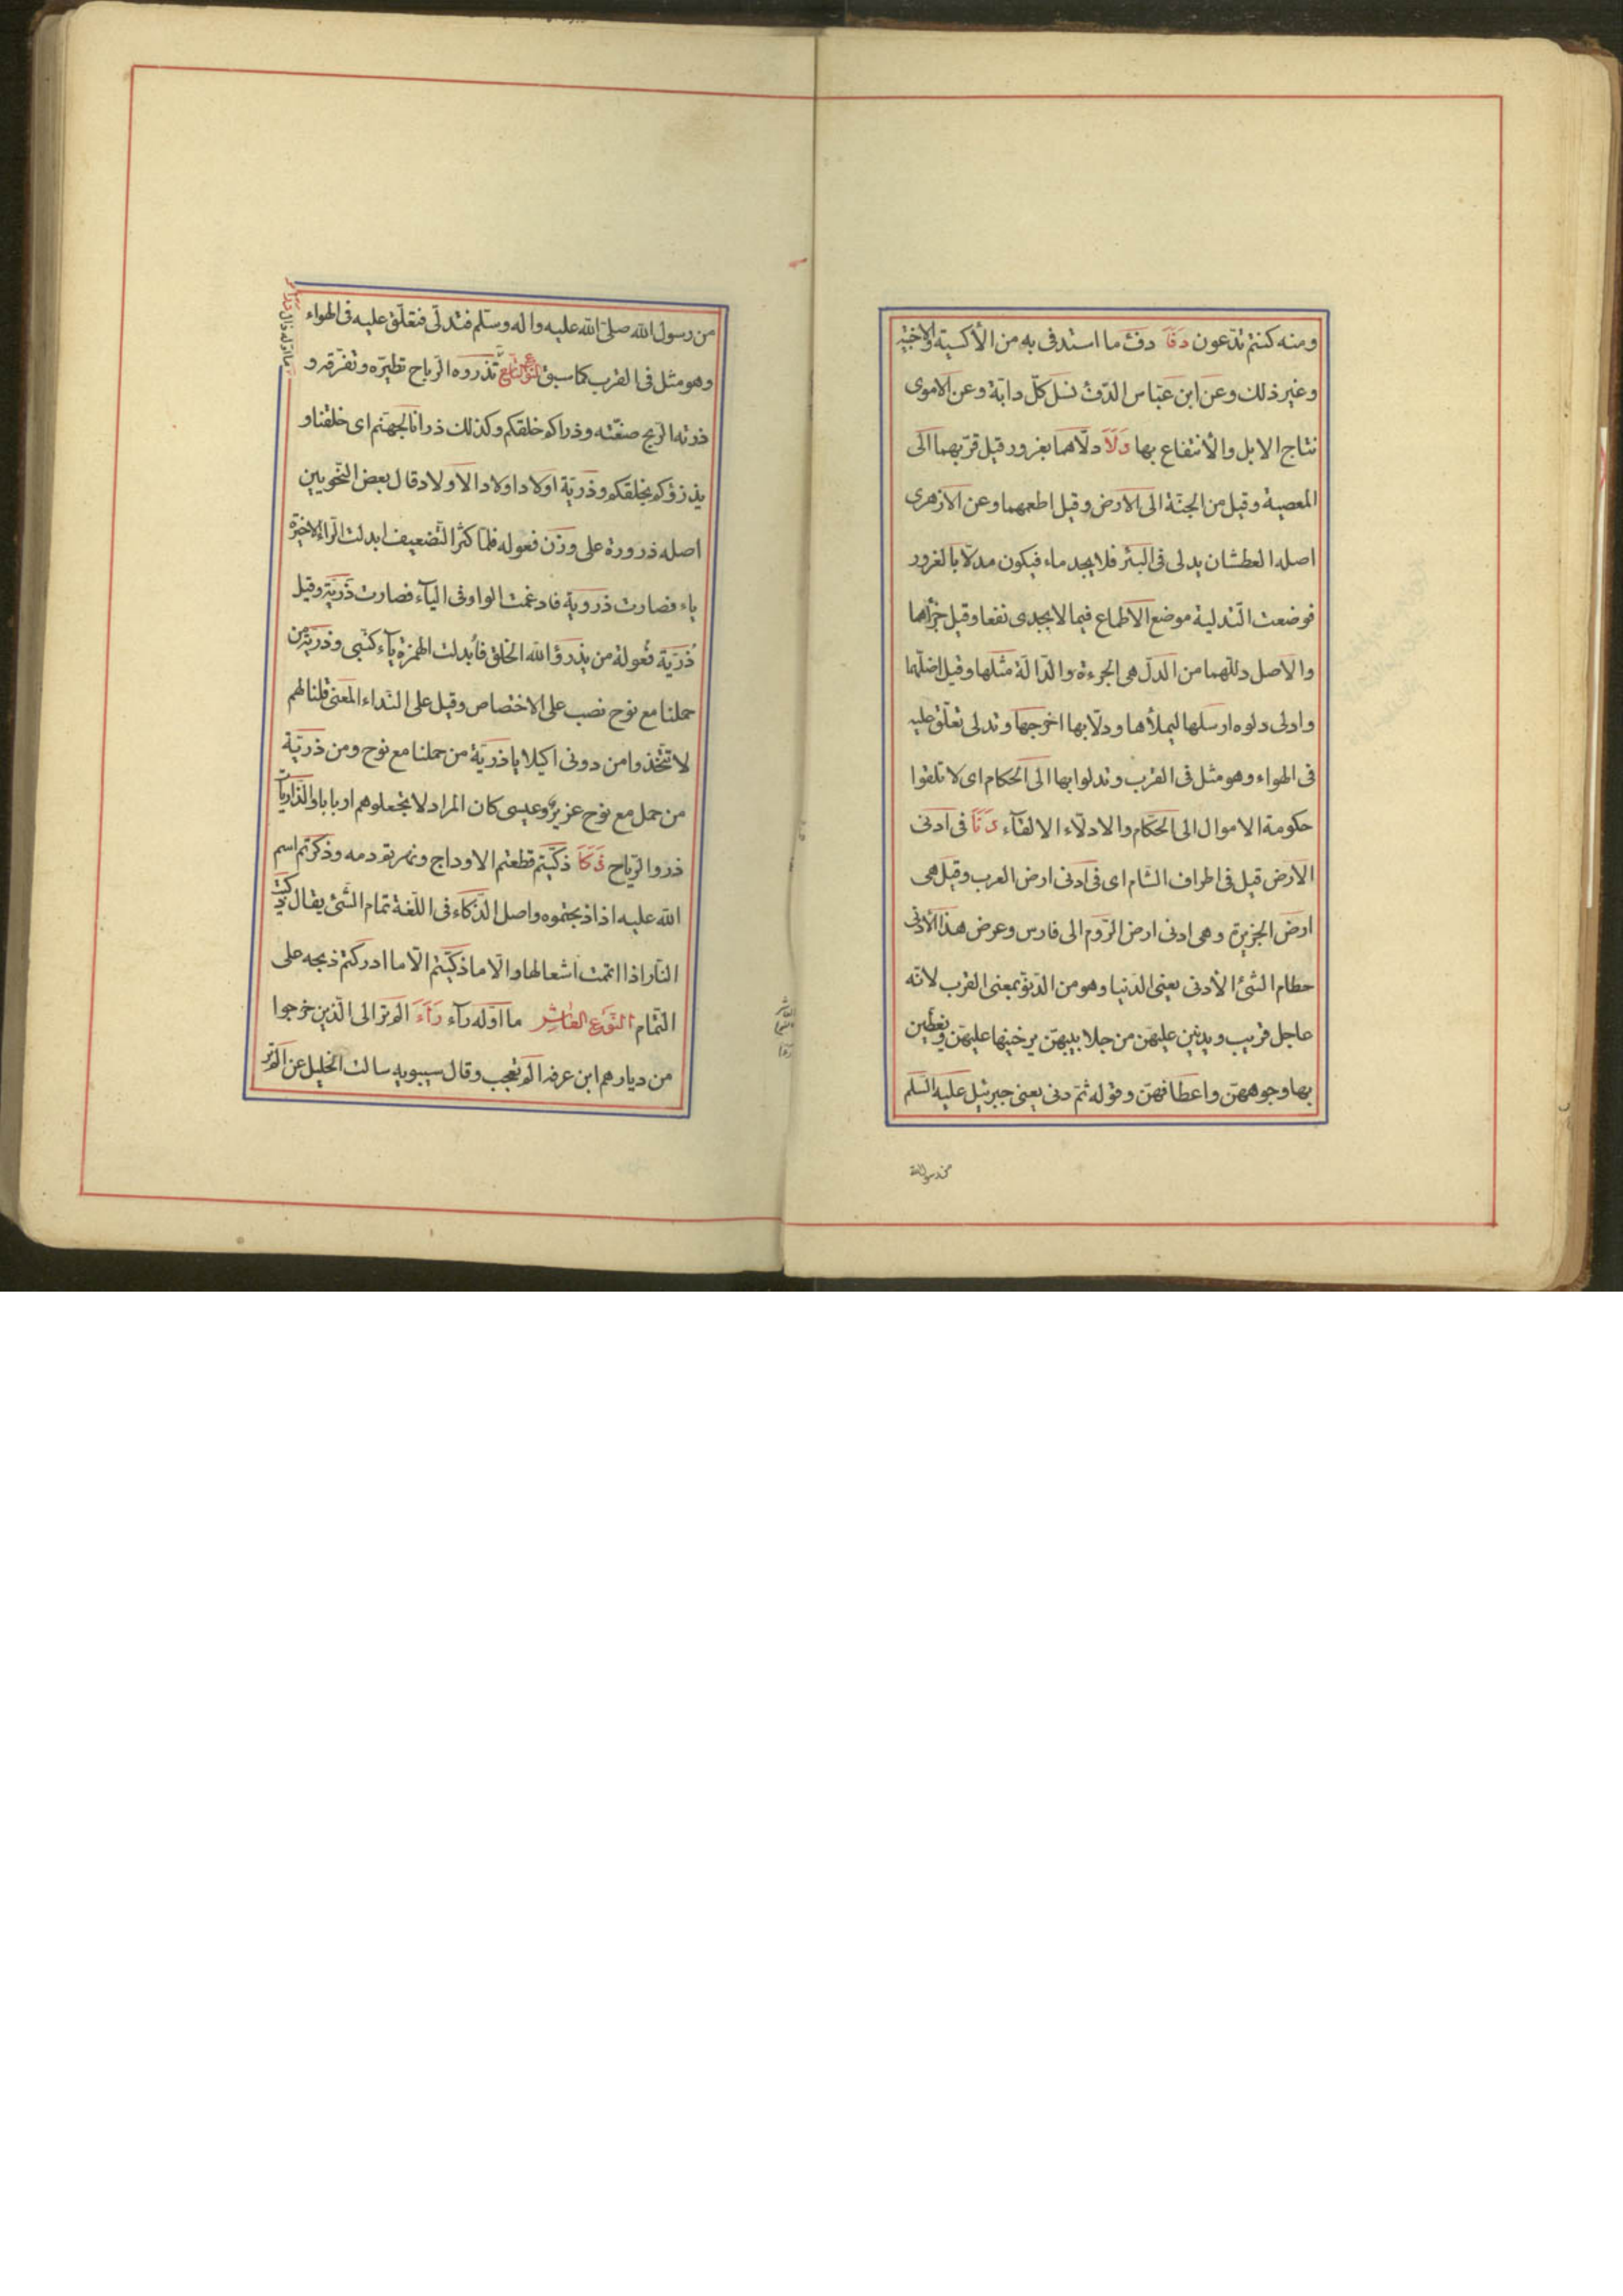 ومنه كنتم تدّعون دَفَأَ دفء ما استدفى به من الأكسية والاخبية
وغير ذلك وعن ابن عبّاس الدّفء نسل كلّ دابّة وعن الاموى
نتاج الابل والأنتفاع بها دَلَاَ دلّاهما بغرور قيل قرّبهما الى
المعصية وقيل من الجنّة الى الارض وقيل اطعمهما وعن الازهرى
اصله العطشان يدلى فى البئر فلا يجد ماء فيكون مدلّا بالغرور
فوضعت التّدلية موضع الاطماع فيما لا يجدى نفعا وقيل جرّأهما
والاصل دللّهما من الدلّ هى الجرءة والدّالّة مثلها وقيل اضلّهما
وادلى دلوه ارسلها ليملأها ودلّا بها اخرجها وتدلى تعلّق عليه
فى الهواء وهو مثل فى القرب وتدلوا بها الى الحكام اى لا تلقوا
حكومة الاموال الى الحكّام والادلّاء الالقآء دَنَاَ فى ادنى
الأرض قيل فى اطراف الشام اى فى ادنى ارض العرب وقيل هى
ارض الجزيرة وهى ادنى ارض الرّوم الى فارس وعرض هذا الأدنى
حطام الشئ الأدنى يعنى الدّنيا وهو من الدّنوّ بمعنى القرب لانّه
عاجل قريب ويدنين عليهنّ من جلابيبهنّ يرخينها عليهنّ ويغطين
بها وجوههنّ واعطافهنّ وقوله ثمّ دنى يعنى جبرئيل عليه السّلم
من رسول الله
من رسول الله صلّى الله عليه واله وسلّم فتدلّى فتعلّق عليه فى الهواء
وهو مثل فى القرب كما سبق النّوع التّاسع تذروه الرّياح تطيّره وتفرّقه و
ذرته الرّيح صنعّته وذراكم خلقكم وكذلك ذرانا لجهنّم اى خلقنا و
يذرؤكم يخلقكم وذرّيّة اولادا واولاد الأولاد قال بعض النّحويين
اصله ذرورة على وزن فعوله فلمّا كثر التّضعيف ابدلت الرّاء الاخيرة
ياء فصارت ذروية فادغمت الواو فى اليآء فصارت ذرّيّة وقيل
ذرّيّة فعولة من يذرؤ الله الخلق فأبدلت الهمزة يآء كنبى وذرّيّة من
حملنا مع نوح نصب على الاختصاص وقيل على النّداء المعنى قلنا لهم
لا تتّخذوا من دونى اكيلا يا ذرّيّة من حملنا مع نوح ومن ذرّيّة
من حمل مع نوح عزير وعيسى كان المراد لا تجعلوهم اربابا والذّاريات
ذروا الرّياح ذَكَاَ ذكّيتم قطعتم الاوداج ونهرتم دمه وذكرتم اسم
الله عليه اذا ذبحتموه واصل الذّكاء فى اللّغة تمام الشّئ يقال ذكّيت
النّار اذا اتممت اشعالها والّا ما ذكّيتم الّا ما ادركتم ذبحه على
التّمام النّوع العاشر ما اوّله رآء رَأَءَ الم تر الى الّذين خرجوا
من ديارهم ابن عرفه الم تعجب وقال سيبويه سالت الخليل عن الم تر